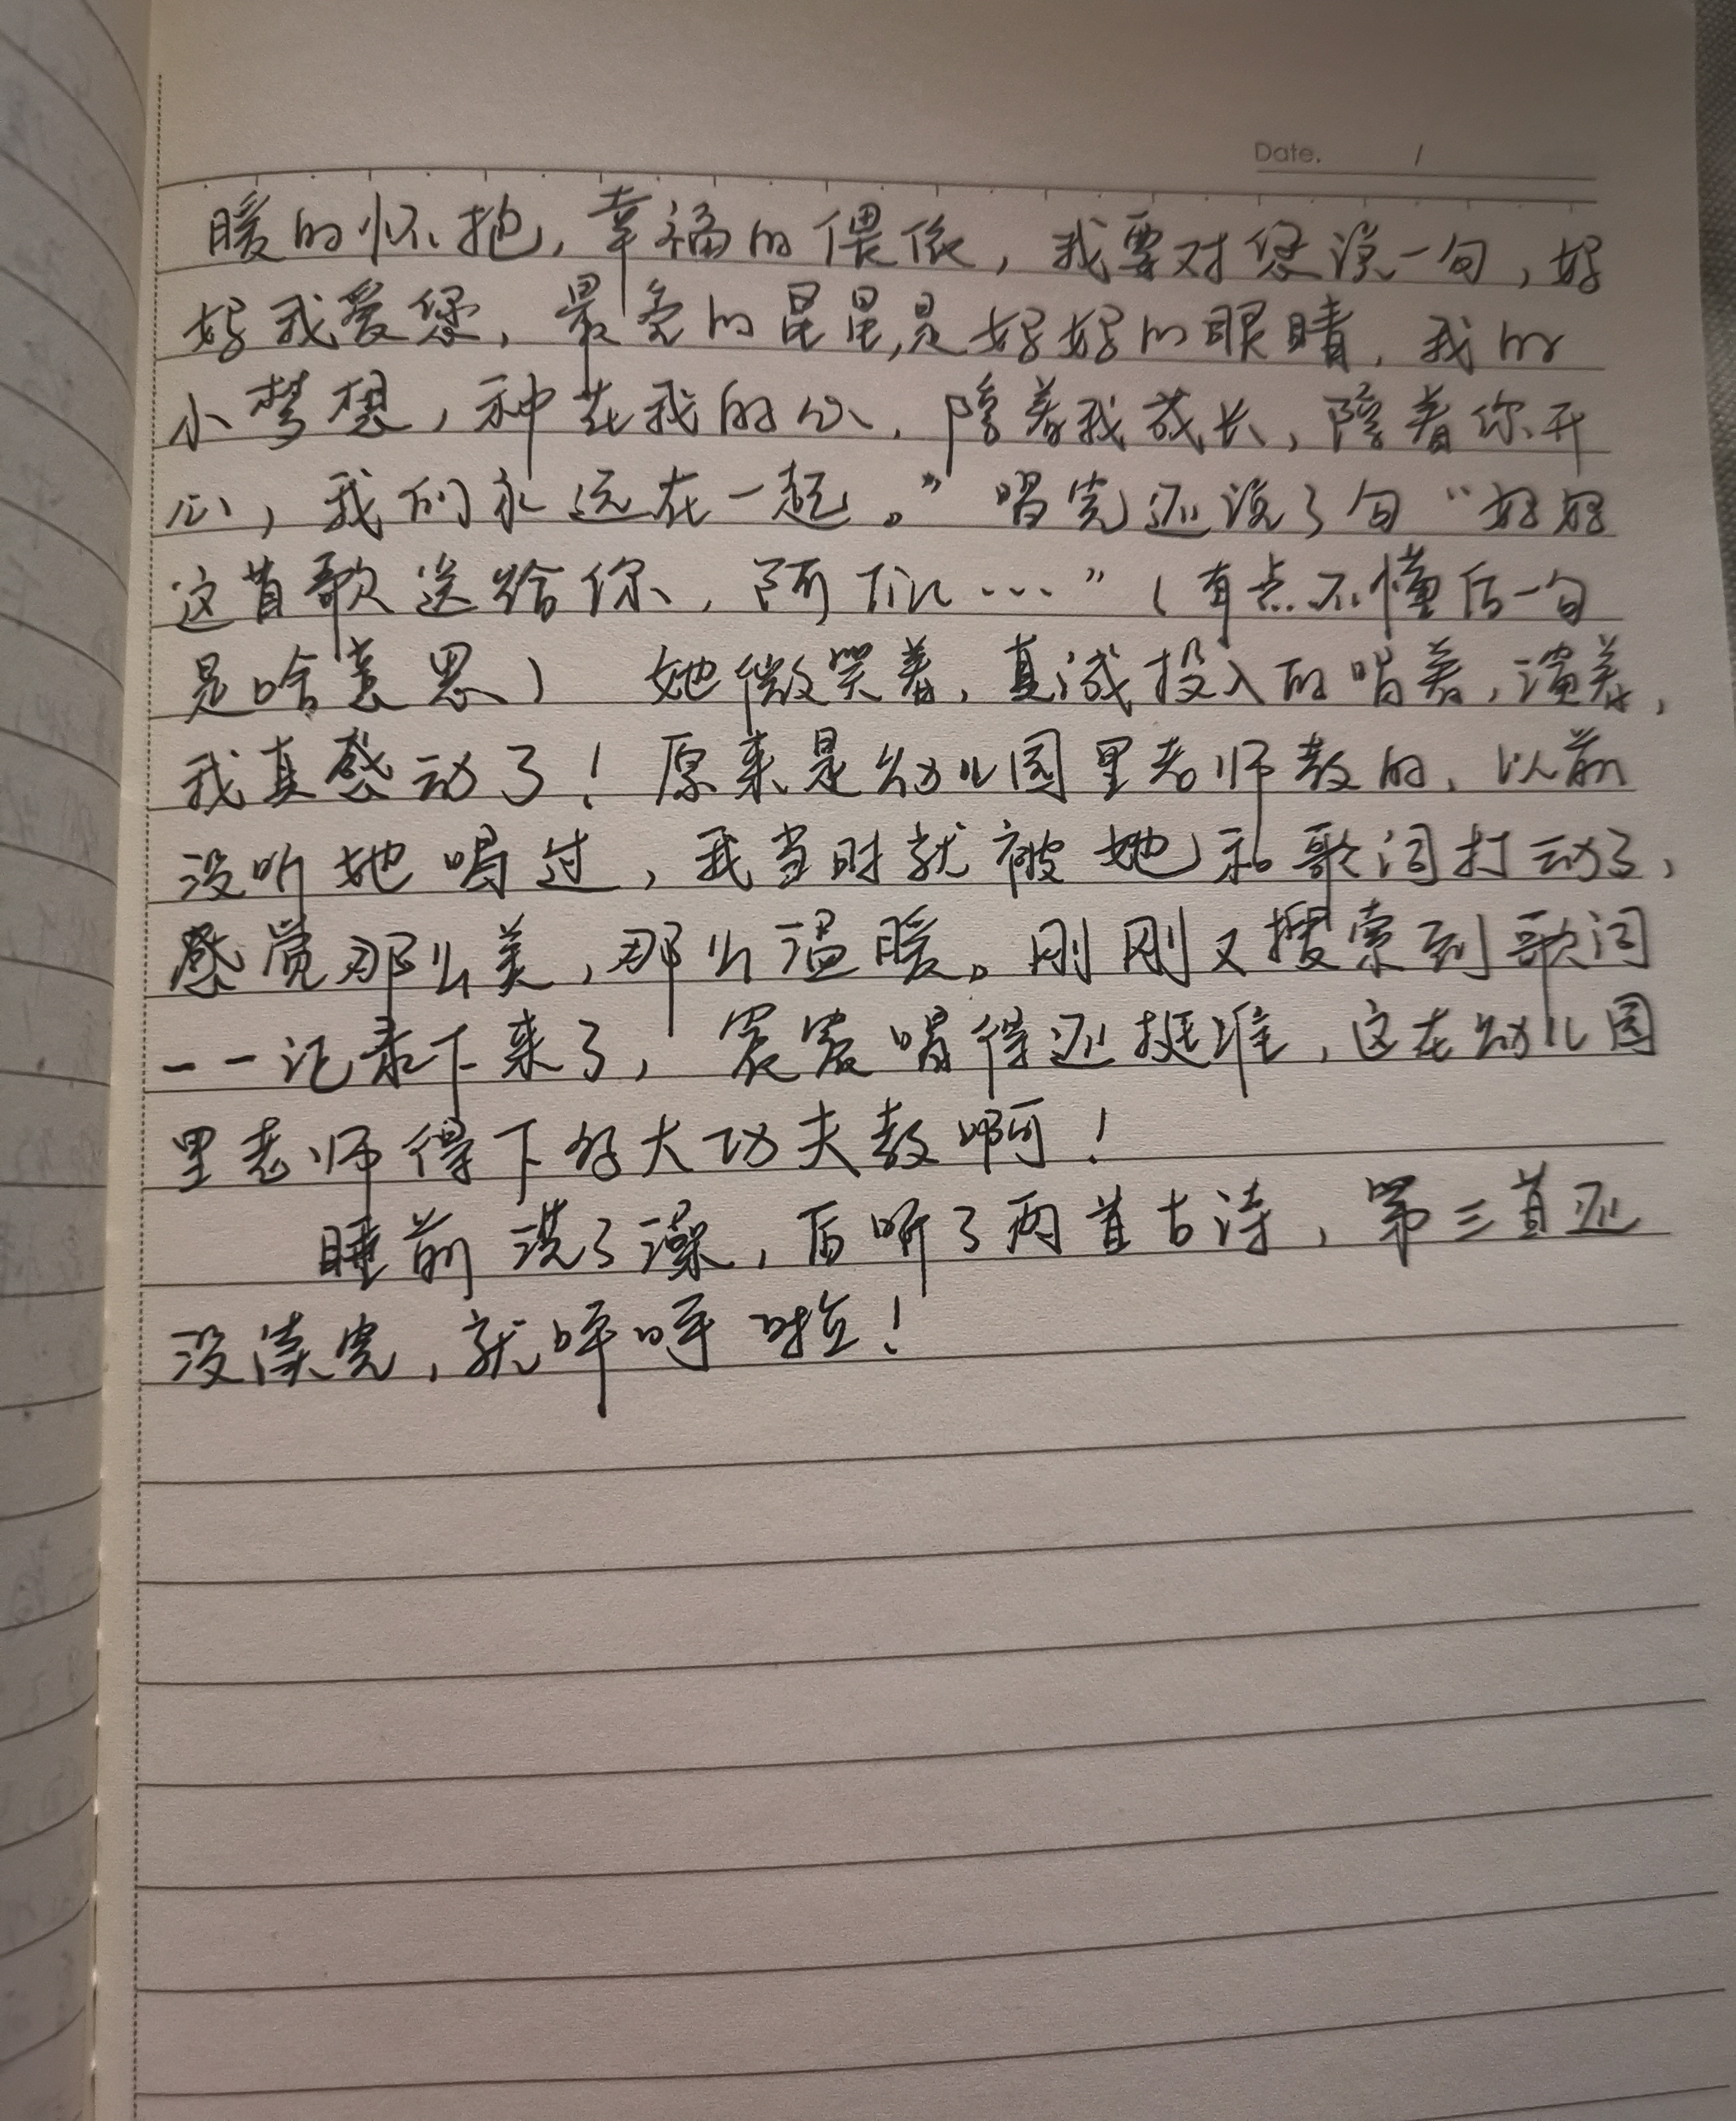 Date. /
暖的怀抱,幸福的偎依,我要对您说一句,妈
妈我爱您,最亮的星星,是妈妈的眼睛,我的
小梦想,种在我的心,陪着我成长,陪着你开
心,我们永远在一起。”唱完还说了句“妈妈
这首歌送给你,阿 …”(有点不懂后一句
是啥意思) 她微笑着,真诚投入的唱着,演着,
我真感动了!原来是幼儿园里老师教的,以前
没听她唱过,我当时就被她和歌词打动了,
感觉那么美,那么温暖。刚刚又搜索到歌词
一一记录下来了,宸宸唱得还挺准,这在幼儿园
里老师得下好大功夫教啊!
睡前洗了澡,后听了两首古诗,第三首还
没读完,就呼呼啦!